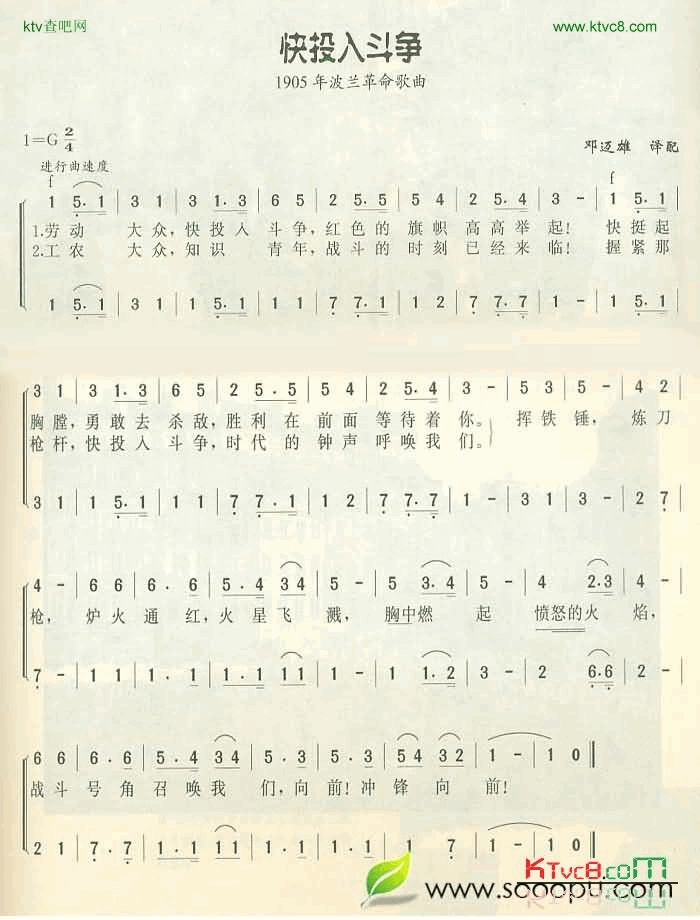 ktv查吧网 www.ktvc8.com
快投入斗争
1905年波兰革命歌曲
1=G 2/4
邓迈雄 译配
进行曲速度
f f
1 5. 1 | 3 1 | 3 1.3 | 6 5 | 2 5.5 | 5 4 | 2 5.4 | 3 - | 1 5.1 |
1.劳动 大众,快投入 斗争,红色的 旗帜 高高举起! 快挺起
2.工农 大众,知识 青年,战斗的时刻已经来临! 握紧那
1 5.1 | 1 1 | 1 5.1 | 1 1 | 7 7.1 | 1 2 | 7 7.7 | 1 - | 1 5.1 |
3 1 | 3 1.3 | 6 5 | 2 5.5 | 5 4 | 2 5.4 | 3 - | 5 3 | 5 - | 4 2 |
胸膛,勇敢去 杀敌,胜利在 前面 等待着你。 挥铁 锤, 炼刀
枪杆,快投入 斗争,时代的 钟声 呼唤我们。
3 1 | 1 5.1 | 1 1 | 7 7.1 | 1 2 | 7 7.7 | 1 - | 3 1 | 3 - | 2 7 |
4 - | 6 6 | 6.6 | 5.4 3 4 | 5 - | 5 3.4 | 5 - | 6 4 | 2.3 4 |
枪, 炉火 通红,火星飞 溅, 胸中燃 起 愤怒的火 焰,
7 - | 1 1 | 1.1 | 1.1 1 1 | 1 - | 1 1.2 | 3 - | 2 2 | 6.6 2 |
6 6 | 6.6 | 5.4 3 4 | 5.3 | 5.3 | 5 4 3 2 | 1 - | 1 0 ‖
战斗 号角 召唤我 们,向前!冲锋向 前!
2 1 | 7.7 | 1.2 1 1 | 1.1 | 1.1 | 1 7 | 1 - | 1 0 ‖
KTvc8.com
www.sooopu.com